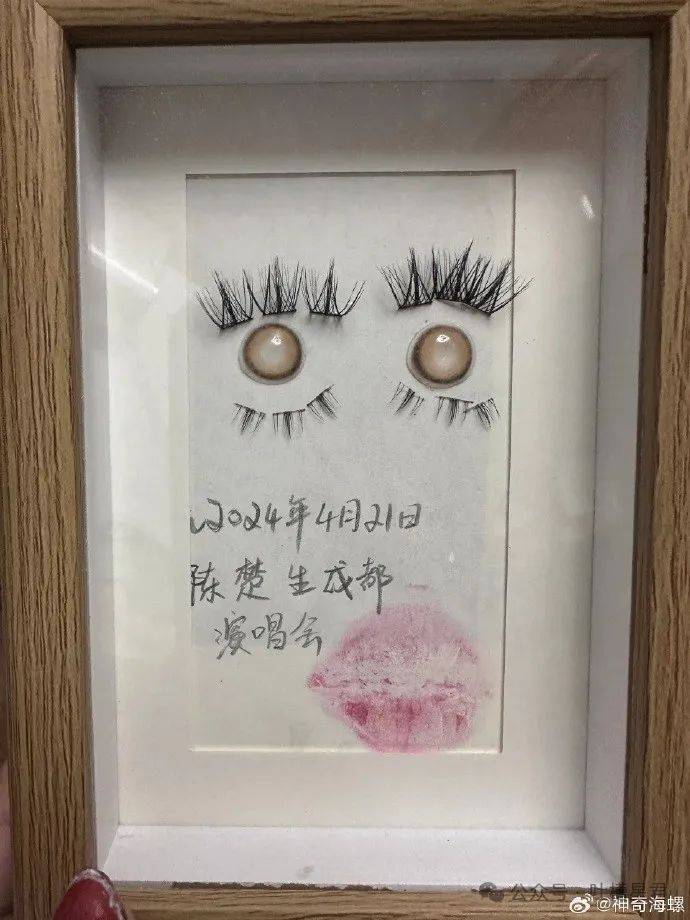 2024年4月21日
陈楚生成都
演唱会
公众号·吐槽星君
@神奇海螺